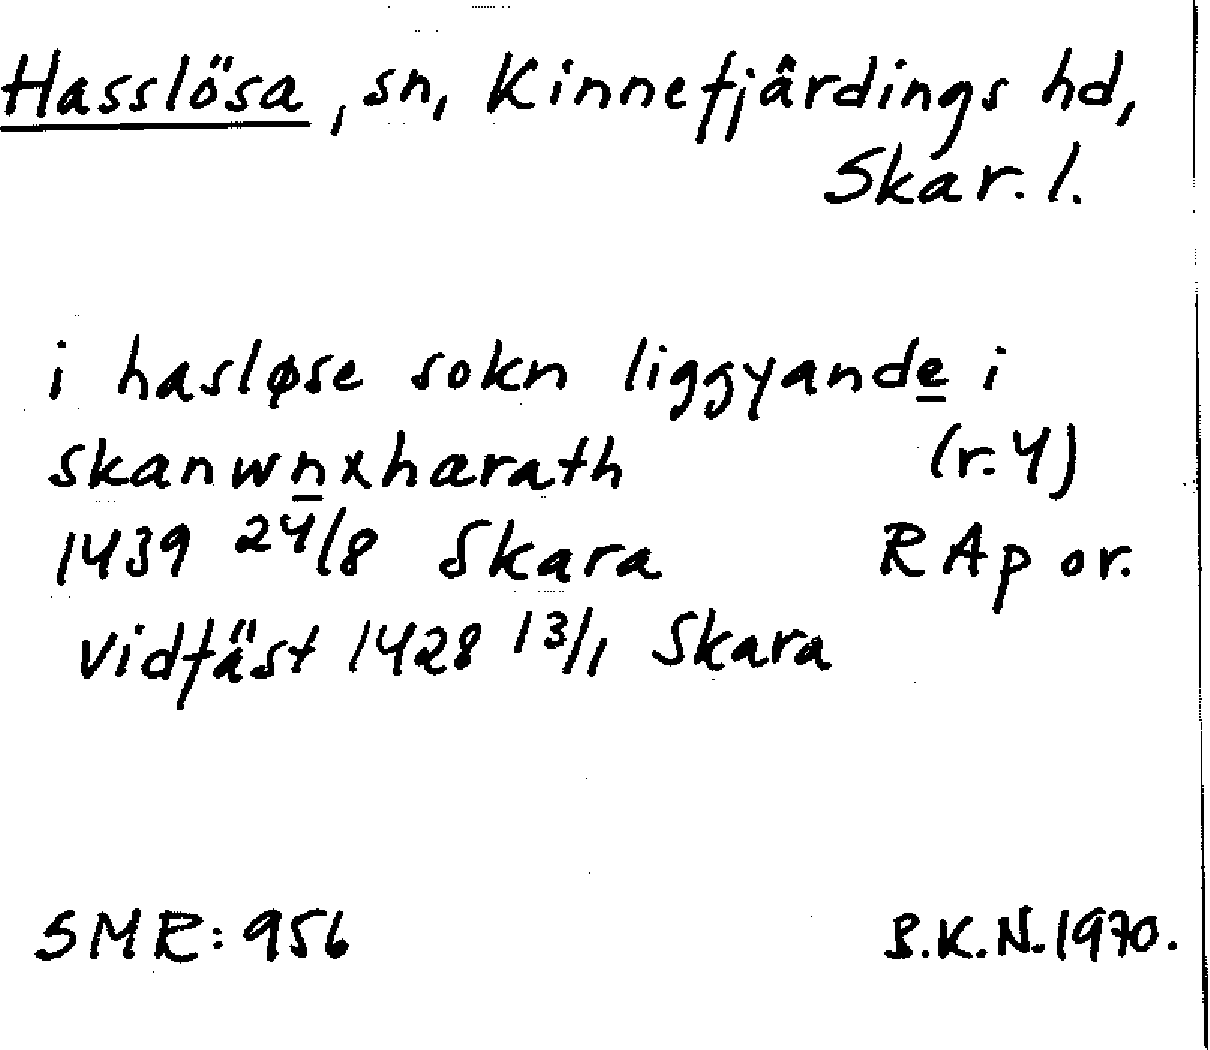 Hasslösa, sn, Kinnefjärdings hd,
Skar. l.
i hasløse sokn liggyande i
skanwnxhærath (r. 4)
1439 24/8 Skara RAp or.
vidfäst 1428 13/1 Skara
SMR: 956 B.K.N. 1970.